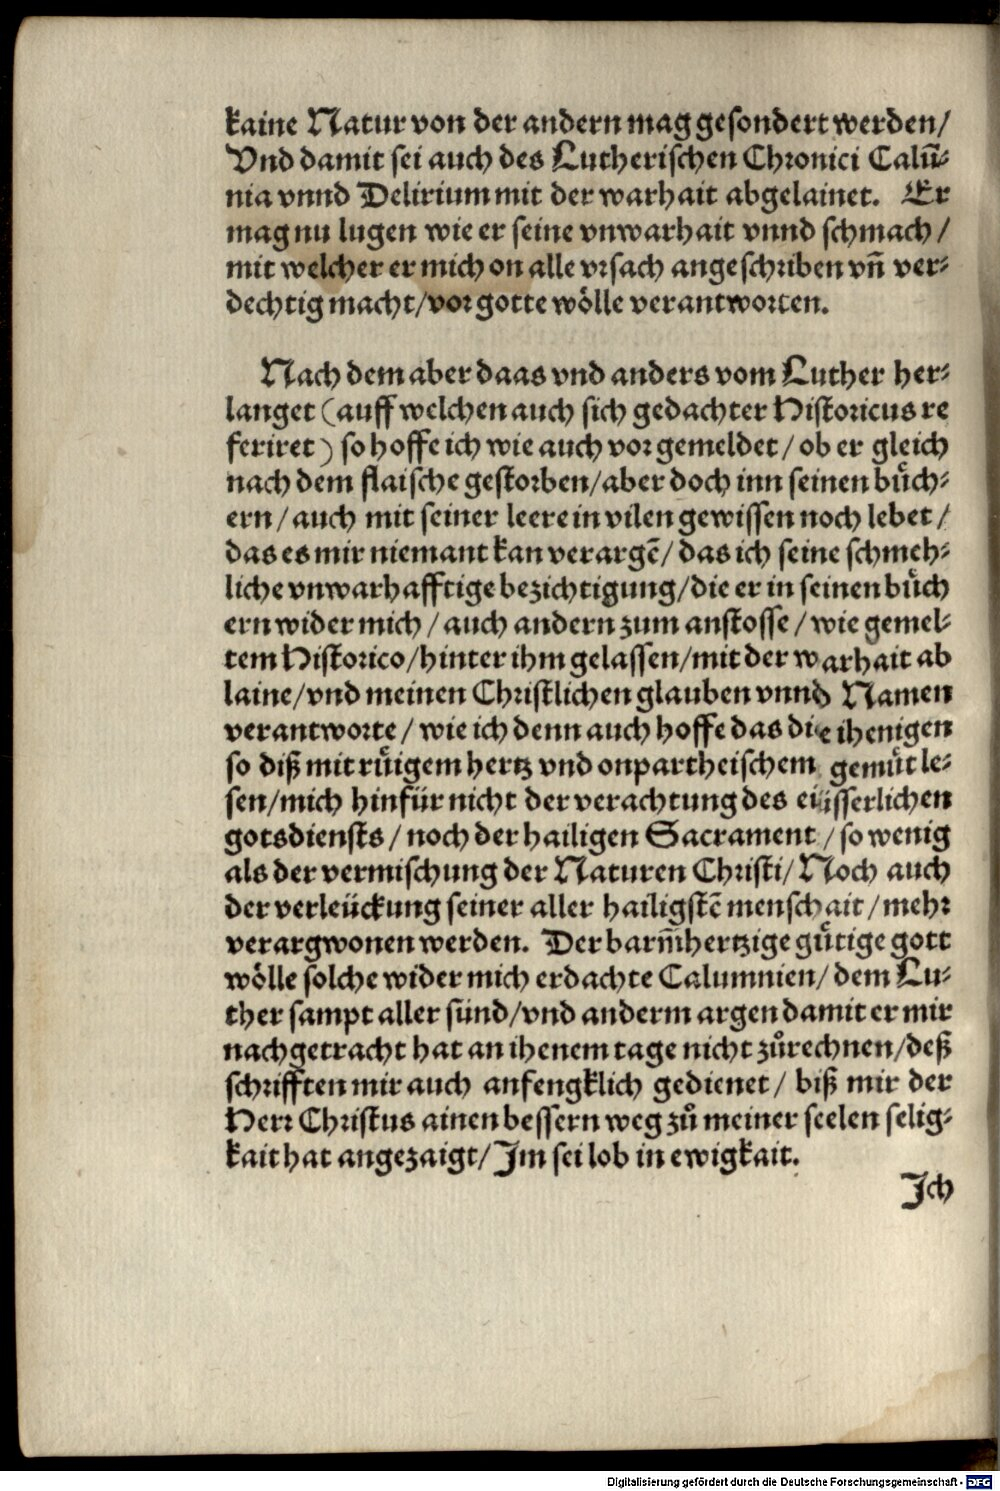 kaine Natur von der andern mag gesondert werden/
Vnd damit sei auch des Lutherischen Chronici Calū-
nia vnnd Delirium mit der warhait abgelainet. Er
mag nu lugen wie er seine vnwarhait vnnd schmach/
mit welcher er mich on alle vrsach angeschriben vn̄ ver-
dechtig macht/vor gotte wölle verantworten.
Nach dem aber daas vnd anders vom Luther her-
langet (auff welchen auch sich gedachter Historicus re
feriret) so hoffe ich wie auch vor gemeldet/ ob er gleich
nach dem flaische gestorben/aber doch inn seinen bůch-
ern/ auch mit seiner leere in vilen gewissen noch lebet/
das es mir niemant kan verargē/ das ich seine schmeh-
liche vnwarhafftige bezichtigung/die er in seinen bůch
ern wider mich/ auch andern zum anstosse/ wie gemel-
tem Historico/hinter ihm gelassen/mit der warhait ab
laine/vnd meinen Christlichen glauben vnnd Namen
verantworte/ wie ich denn auch hoffe das die ihenigen
so diß mit růigem hertz vnd onpartheischem gemůt le-
sen/mich hinfür nicht der verachtung des eüsserlichen
gotsdiensts/ noch der hailigen Sacrament/ so wenig
als der vermischung der Naturen Christi/ Noch auch
der verleückung seiner aller hailigstē menschait/mehr
verargwonen werden. Der barm̄hertzige gůtige gott
wölle solche wider mich erdachte Calumnien/ dem Lu-
ther sampt aller sünd/vnd anderm argen damit er mir
nachgetracht hat an ihenem tage nicht zůrechnen/deß
schrifften mir auch anfengklich gedienet/ biß mir der
Herr Christus ainen bessern weg zů meiner seelen selig-
kait hat angezaigt/Im sei lob in ewigkait.
Ich
Digitalisierung gefördert durch die Deutsche Forschungsgemeinschaft - DFG